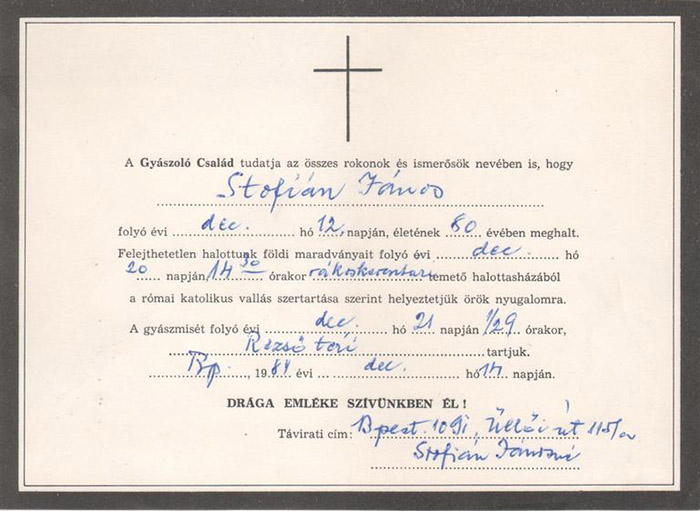 A Gyászoló Család tudatja az összes rokonok és ismerősök nevében is, hogy
Stofián János
folyó évi dec. hó 12. napján, életének 80 évében meghalt.
Felejthetetlen halottunk földi maradványait folyó évi dec. hó
20 napján 14 30 órakor rákoskeresztúri temető halottasházából
a római katolikus vallás szertartása szerint helyeztetjük örök nyugalomra.
A gyászmisét folyó évi dec. hó 21 napján 1/29 órakor,
Rezső téri tartjuk.
Bp., 1984 évi dec. hó 14 napján.
DRÁGA EMLÉKE SZÍVÜNKBEN ÉL!
Távirati cím: Bpest. 1091, Üllői út 115/a
Stofián Jánosné